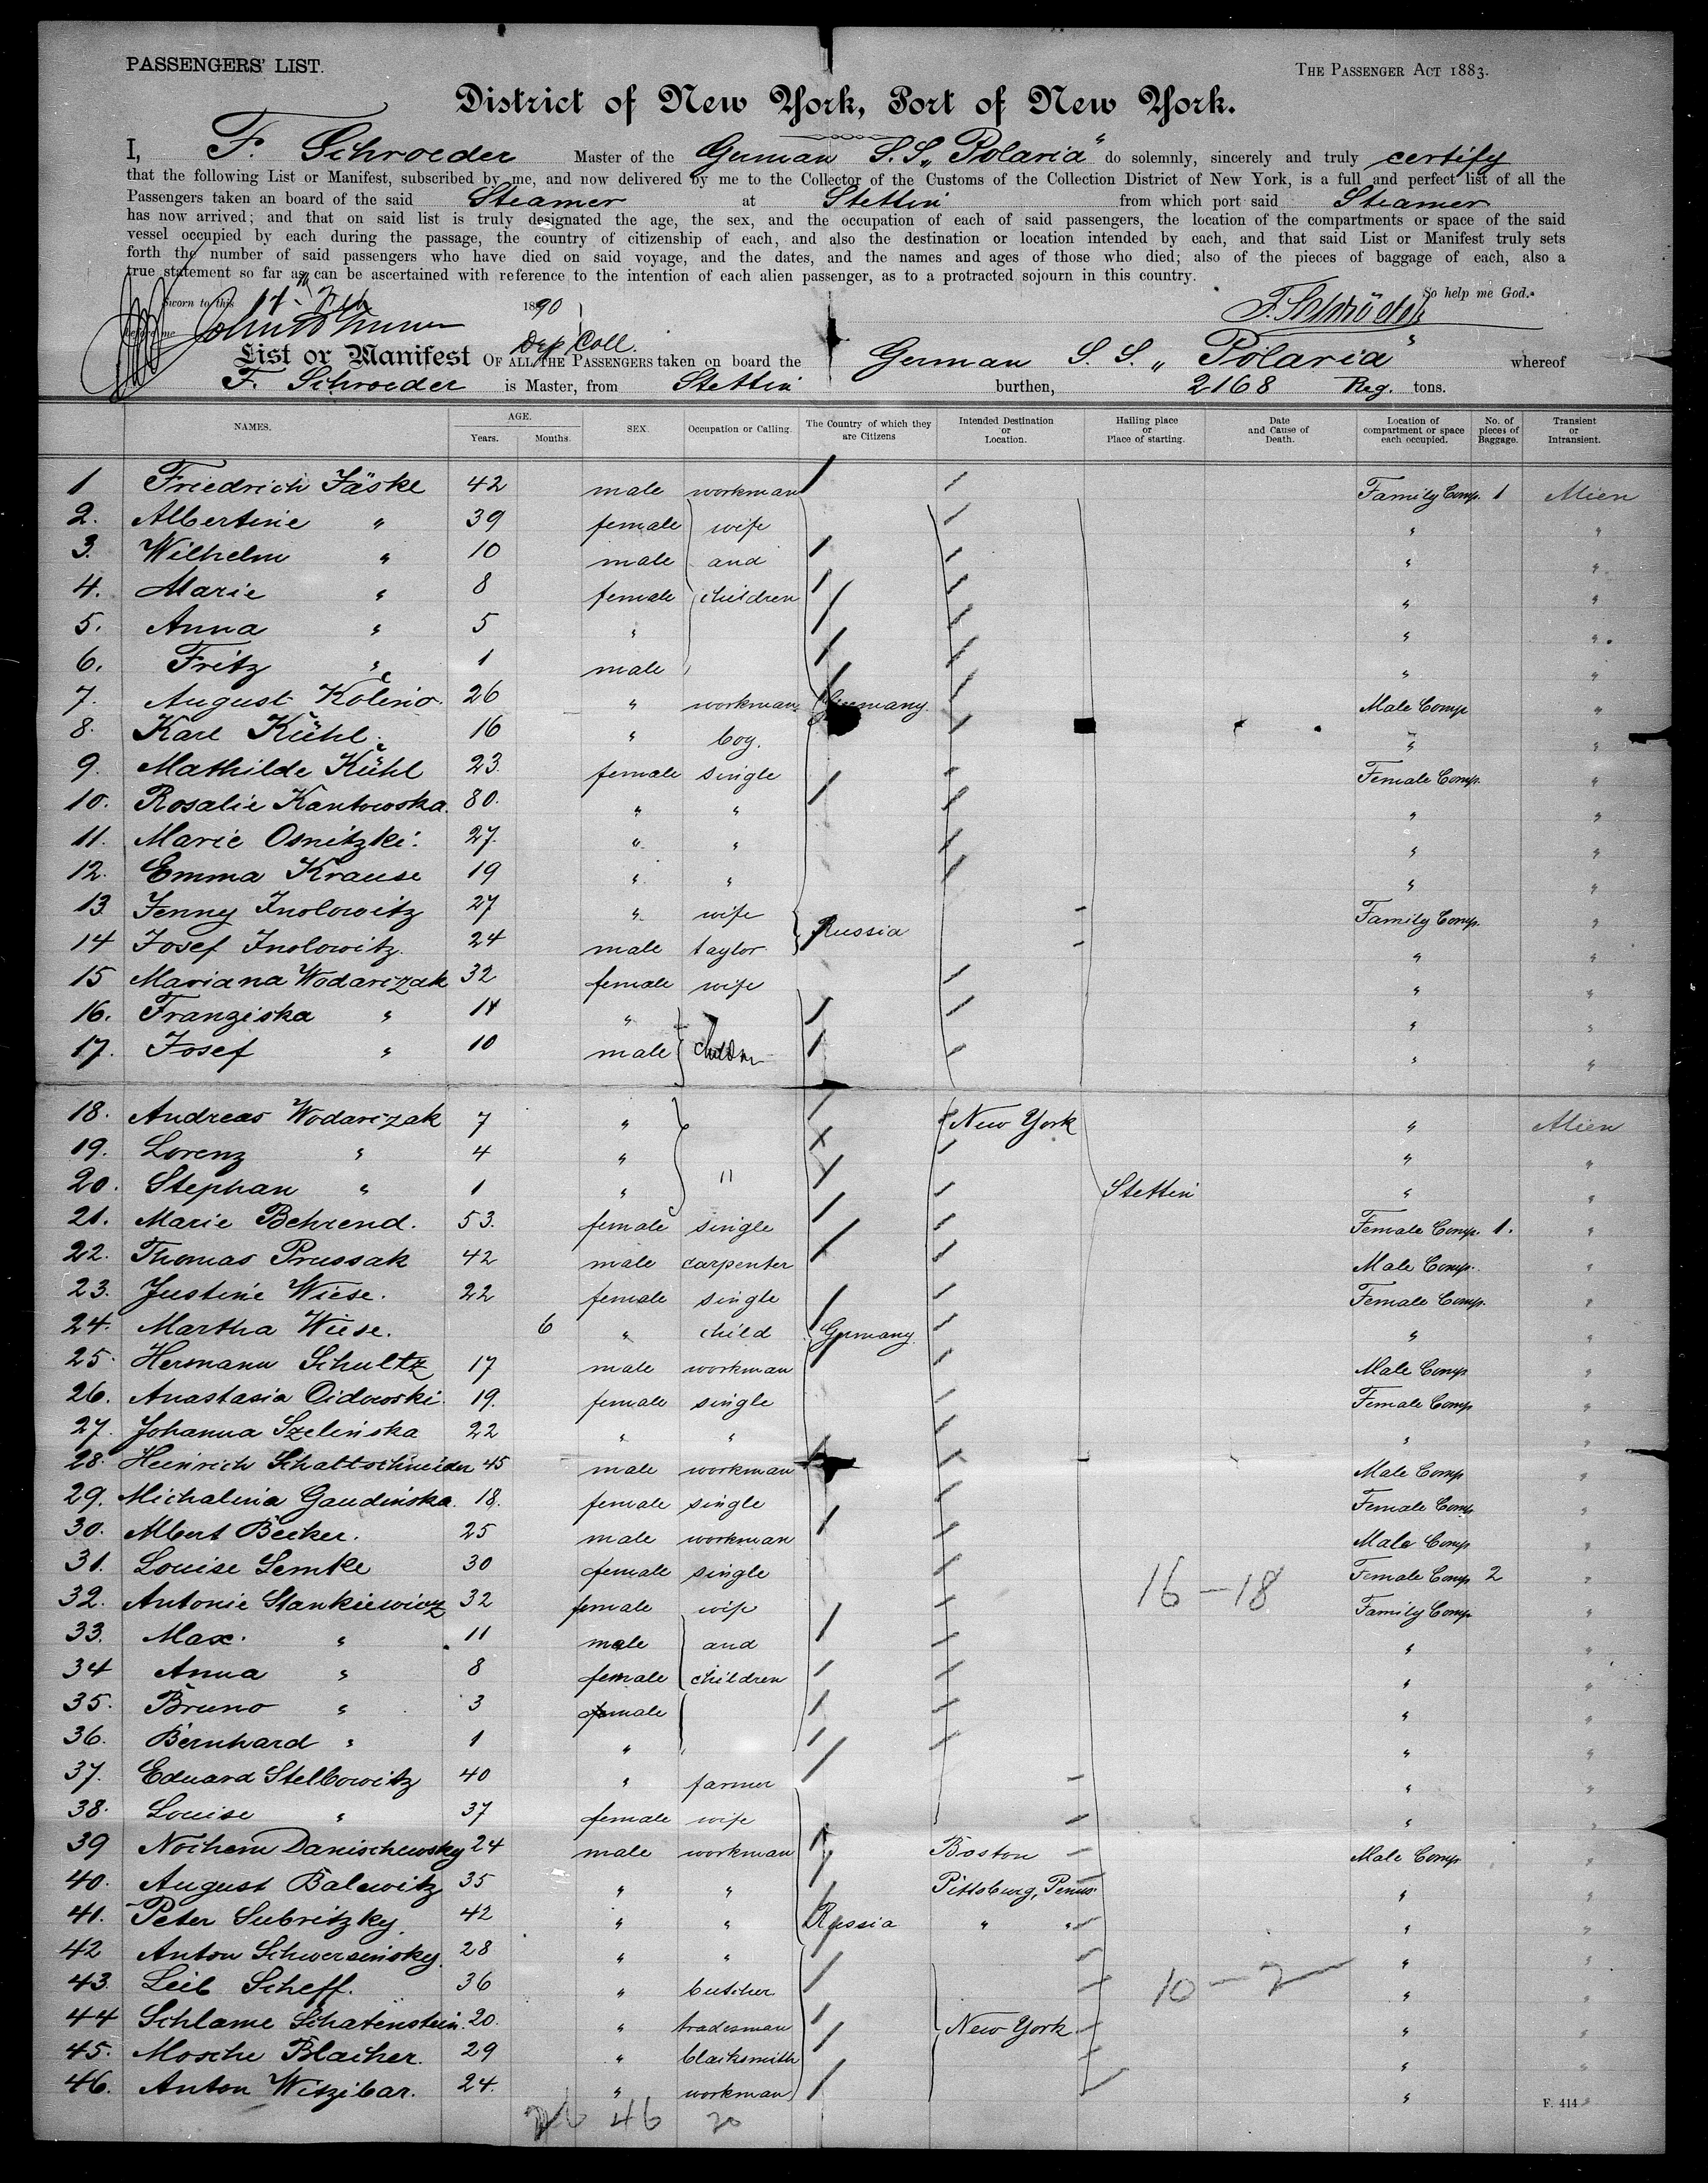 PASSENGERS' LIST.
THE PASSENGER ACT 1883.
District of New York, Port of New York.
I, F. Schroeder Master of the German S.S. „Polaria“ do solemnly, sincerely and truly certify
that the following List or Manifest, subscribed by me, and now delivered by me to the Collector of the Customs of the Collection District of New York, is a full and perfect list of all the
Passengers taken an board of the said Steamer at Stettin from which port said Steamer
has now arrived; and that on said list is truly designated the age, the sex, and the occupation of each of said passengers, the location of the compartments or space of the said
vessel occupied by each during the passage, the country of citizenship of each, and also the destination or location intended by each, and that said List or Manifest truly sets
forth the number of said passengers who have died on said voyage, and the dates, and the names and ages of those who died; also of the pieces of baggage of each, also a
true statement so far as can be ascertained with reference to the intention of each alien passenger, as to a protracted sojourn in this country.
So help me God.
Sworn to this 17th Feb 1890 F. Schröder
before me
Dep Coll.
List or Manifest OF ALL THE PASSENGERS taken on board the German S. S. „Polaria“ whereof
F. Schroeder is Master, from Stettin burthen, 2168 Reg. tons.
NAMES. AGE. Years. Months. SEX. Occupation or Calling. The Country of which they are Citizens Intended Destination or Location. Hailing place or Place of starting. Date and Cause of Death. Location of compartment or space each occupied. No. of pieces of Baggage. Transient or Intransient.
1 Friedrich Jäske 42 male workman Family Comp. 1 Alien
2. Albertine " 39 female wife " "
3. Wilhelm " 10 male and " "
4. Marie " 8 female children " "
5. Anna " 5 " " "
6. Fritz " 1 male " "
7. August Kolino. 26 " workman Germany. Male Comp "
8. Karl Kühl. 16 " boy. " "
9. Mathilde Kühl 23. female single Female Comp. "
10. Rosalie Kantowska. 80. " " " "
11. Marie Osnitzki. 27. " " " "
12. Emma Krause 19 " " " "
13 Jenny Inolowitz 27 " wife Russia Family Comp. "
14 Josef Inolowitz. 24 male taylor " "
15 Mariana Wodarczak 32 female wife " "
16. Franziska " 14 " " "
17. Josef " 10 male children " "
18. Andreas Wodarczak 7 " New York " Alien
19. Lorenz " 4 " " "
20. Stephan " 1 " " Stettin " "
21. Marie Behrend. 53. female single Female Comp. 1. "
22. Thomas Prussak 42 male carpenter Male Comp. "
23. Justine Wiese. 22 female single Female Comp. "
24. Martha Wiese. 6 " child Germany " "
25. Hermann Schultz 17 male workman Male Comp "
26. Anastasia Cidowski. 19. female single Female Comp "
27. Johanna Szelinska 22 " " " "
28. Heinrich Schaltschneider 45 male workman Male Comp "
29. Michalina Gaudinska. 18. female single Female Comp "
30. Albert Becker. 25 male workman Male Comp "
31. Louise Lemke 30 female single 16-18 Female Comp 2 "
32. Antonie Stankiewicz 32 female wife Family Comp "
33. Max. " 11 male and " "
34 Anna " 8 female children " "
35. Bruno " 3 male " "
36. Bernhard " 1 " " "
37. Eduard Stelbowitz 40 " farmer " "
38. Louise " 37 female wife " "
39 Nochem Danischewsky 24 male workman Boston Male Comp "
40. August Balewitz 35 " " Pittsburg, Penns. " "
41. Peter Subritzky. 42 " " Russia " " " "
42 Anton Schwersinsky. 28 " " " "
43. Leib Scheff. 36 " butcher 10-2 " "
44 Schlame Schatenstein. 20. " tradesman New York " "
45. Mosche Blacher. 29 " blacksmith " "
46. Anton Witzibar. 24. " workman " "
26 46 20
F. 414